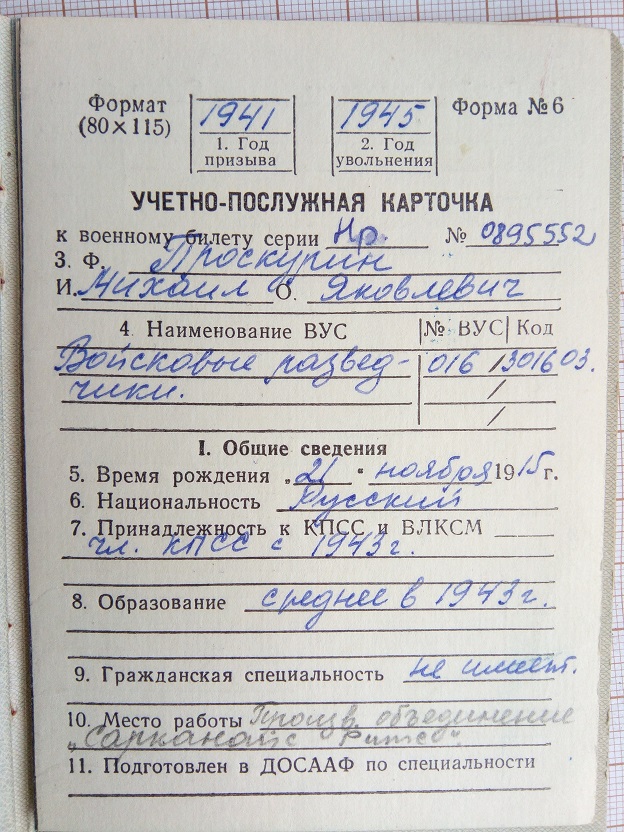 Формат 1941 1945 Форма №6
(80×115) 1. Год призыва 2. Год увольнения
УЧЕТНО-ПОСЛУЖНАЯ КАРТОЧКА
к военному билету серии Нр № 0895552
3. Ф. Проскурин
И. Михаил О. Яковлевич
4. Наименование ВУС № ВУС Код
Войсковые развед- 016 /301603.
чики. /
/
I. Общие сведения
5. Время рождения „21" ноября 1915 г.
6. Национальность Русский
7. Принадлежность к КПСС и ВЛКСМ
чл. КПСС с 1943 г.
8. Образование среднее в 1943 г.
9. Гражданская специальность не имеет.
10. Место работы Произв. объединение
„Сарканайс Ритс".
11. Подготовлен в ДОСААФ по специальности